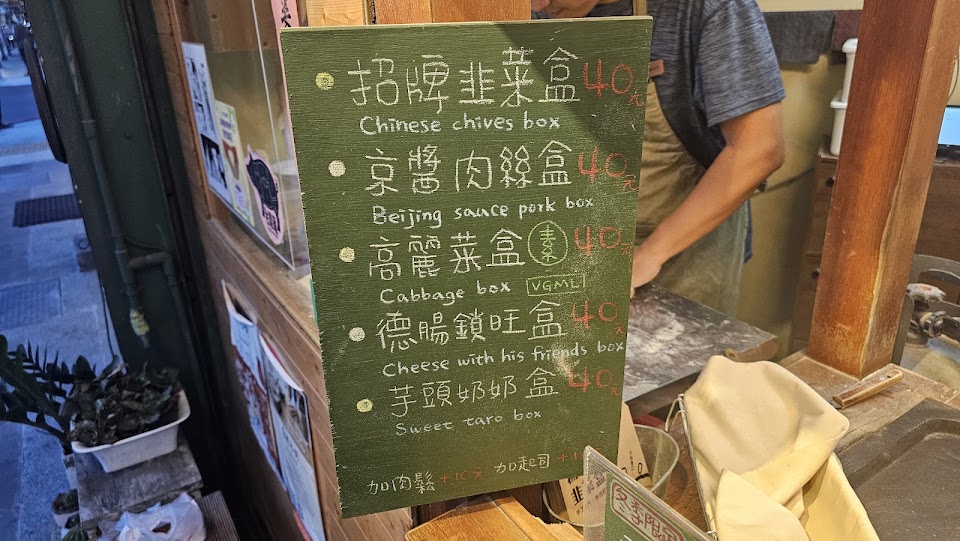 招牌韭菜盒 40元
Chinese chives box
京醬肉絲盒 40元
Beijing sauce pork box
高麗菜盒 素 40元
Cabbage box VGML
德腸鎖旺盒 40元
Cheese with his friends box
芋頭奶奶盒 40元
Sweet taro box
加肉鬆 +10元 加起司
冬季限定